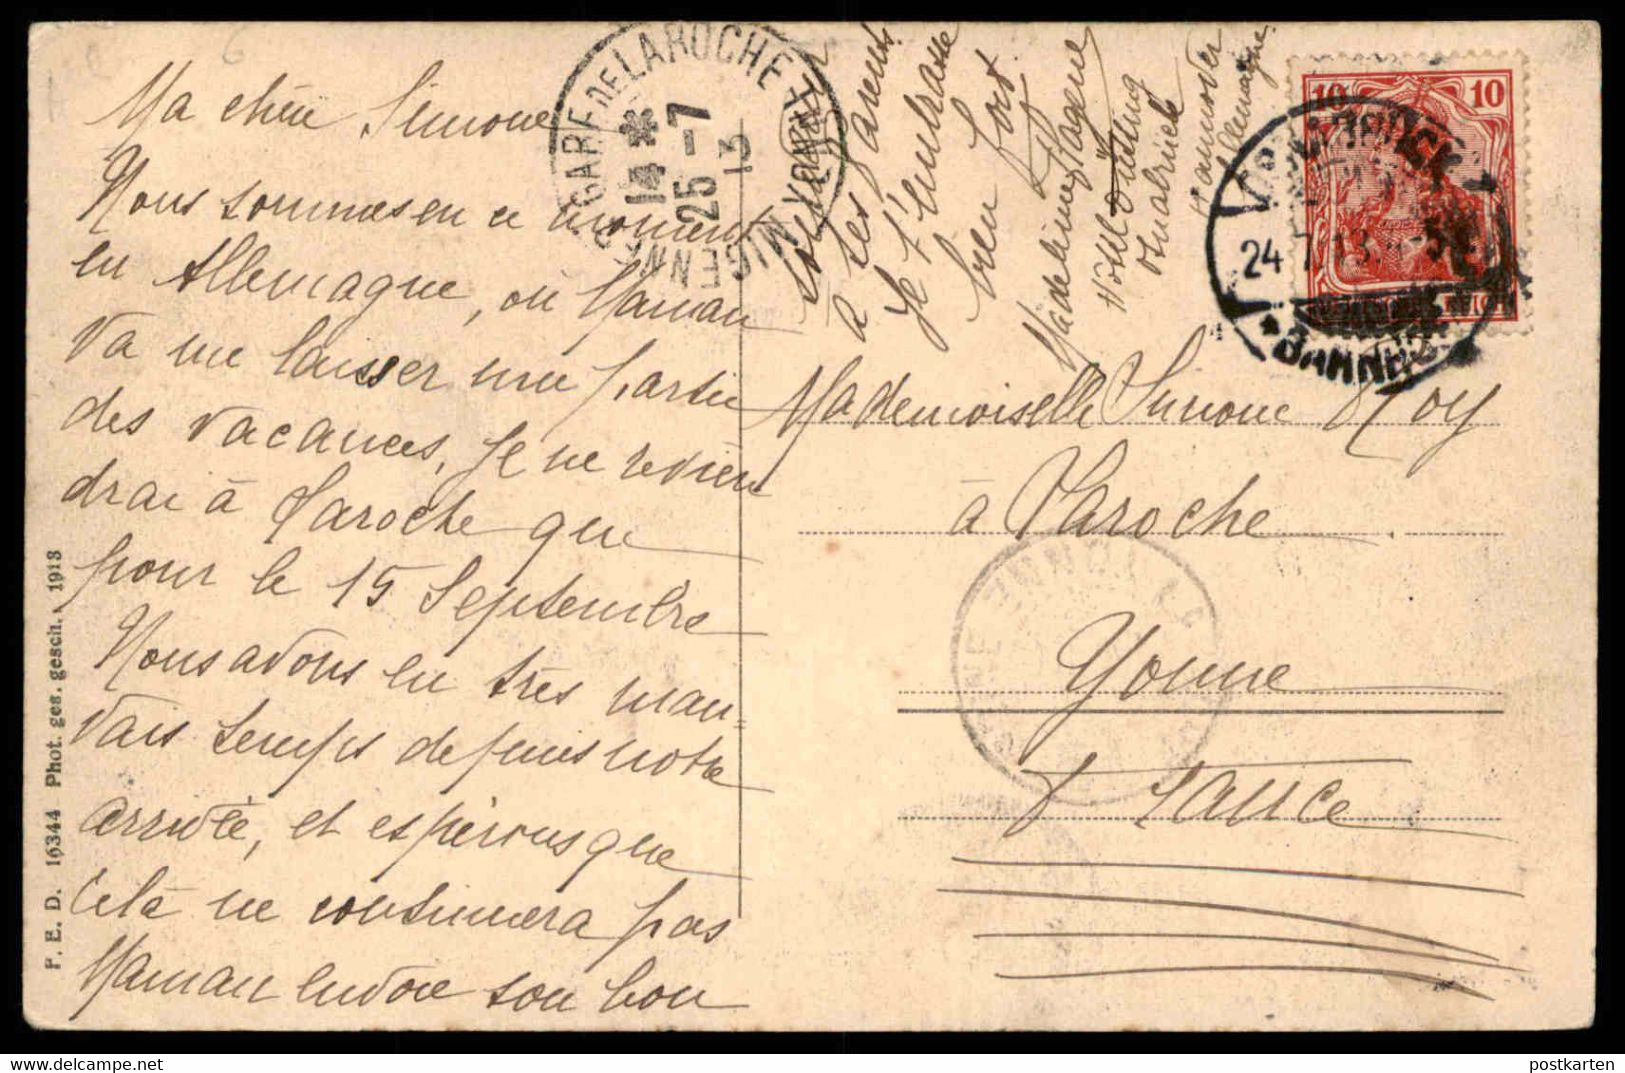 Ma chère Simone
Nous sommes en ce moment
en Allemagne, où Maman
va me laisser une partie
des vacances. Je ne revien
drai à Laroche que
pour le 15 Septembre
Nous avons eu très mau-
vais temps depuis notre
arrivée, et espérons que
cela ne continuera pas
Maman envoie son bon
souvenir
à tes parents
Je t'embrasse
bien fort
Madeleine
Hôtel Düsting
Osnabrück
Hannover
Allemagne
Mademoiselle Simone Roy
à Laroche
Yonne
France
GARE DE LAROCHE-MIGENNES
YONNE
14 *
25 -7
13
10 10
OSNABRÜCK
24.7.13.
* BAHNHOF
P. E. D. 16344 Phot. ges. gesch. 1913
postkarten